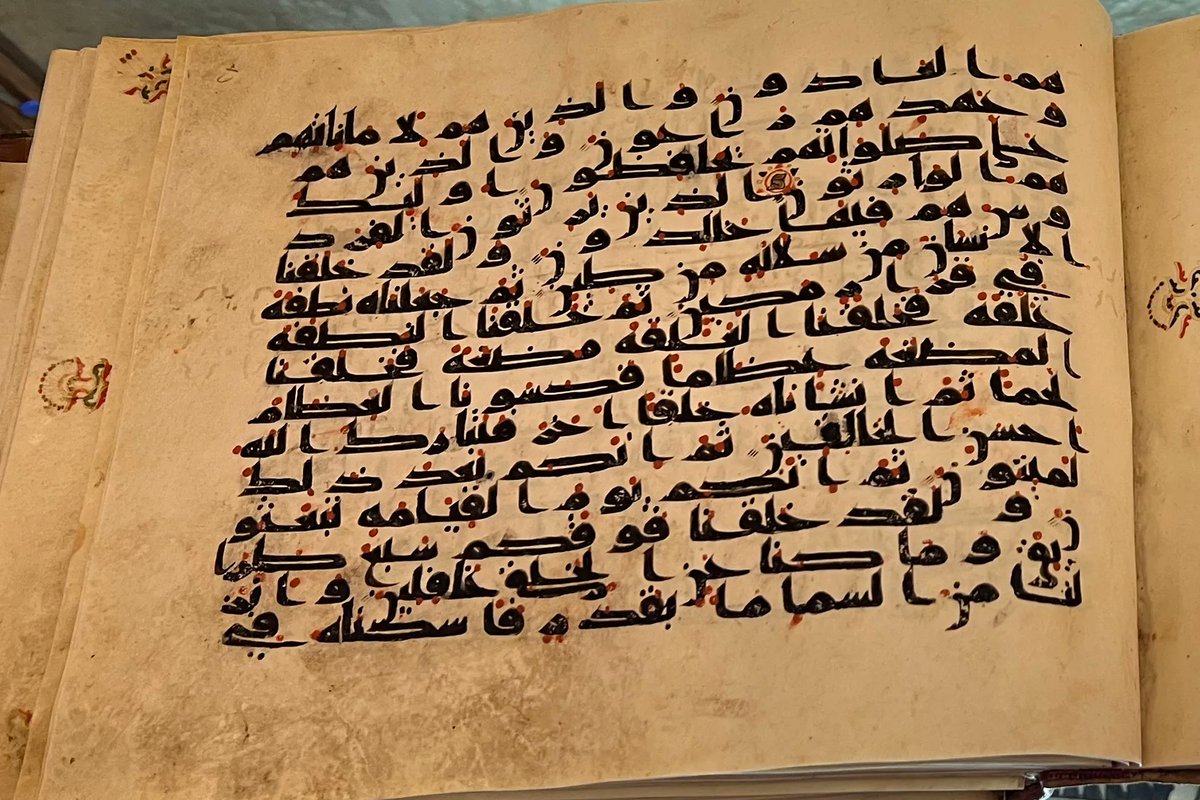 هم العادون والذين هم لاماناتهم
وعهدهم راعون والذين هم
على صلواتهم يحافظون اولئك
هم الوارثون الذين يرثون الفرد
وس هم فيها خالدون ولقد خلقنا
الانسان من سلالة من طين ثم جعلناه نطفة
في قرار مكين ثم خلقنا النطفة
علقة فخلقنا العلقة مضغة فخلقنا
المضغة عظاما فكسونا العظام
لحما ثم انشاناه خلقا اخر فتبارك الله
احسن الخالقين ثم انكم بعد ذلك
لميتون ثم انكم يوم القيامة تبعثو
ن ولقد خلقنا فوقكم سبع طرا
يق وما كنا عن الخلق غافلين وانز
لنا من السما ما بقدر فاسكناه في